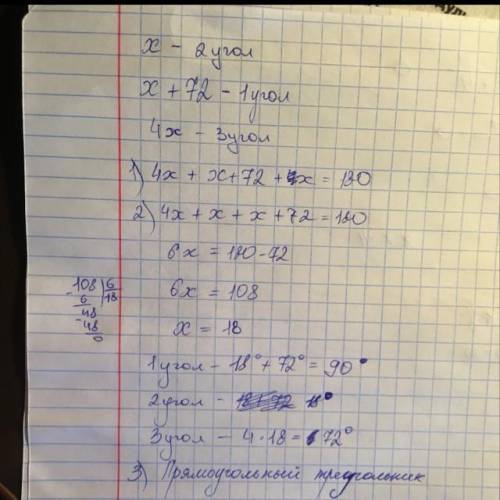 x - 2угол
x + 72 - 1угол
4x - 3угол
1) 4x + x + 72 + x = 180
2) 4x + x + x + 72 = 180
6x = 180-72
6x = 108
108 6
6 18
48
-48
0
x = 18
1угол - 18° + 72° = 90°
2угол - 18°
3угол - 4·18 = 72°
3) Прямоугольный треугольник